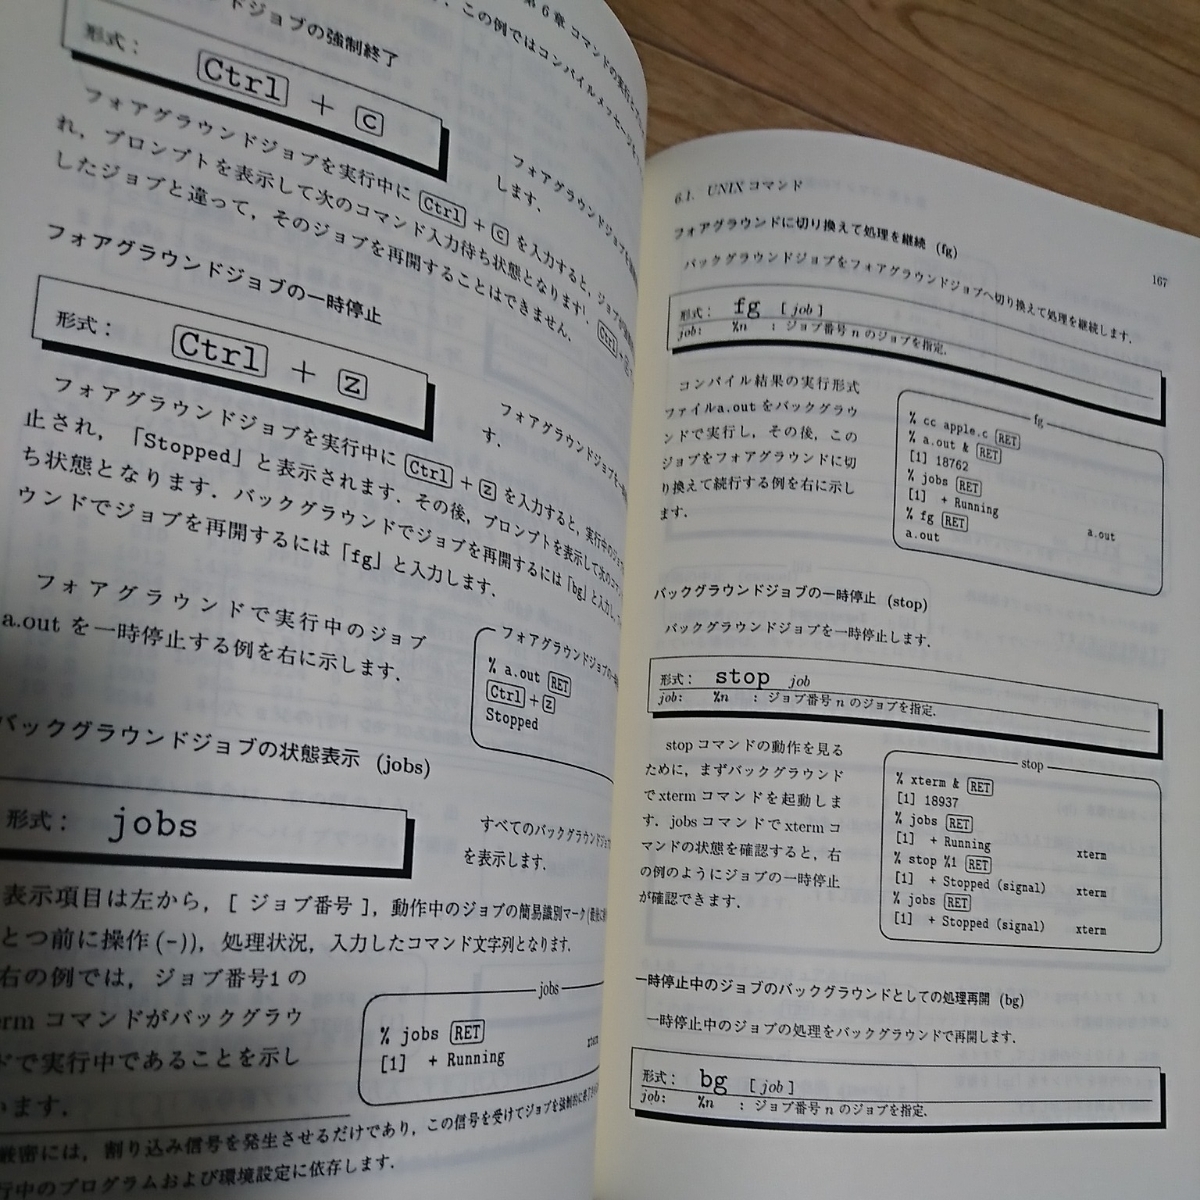 第6章 コマンドの実行と
、この例ではコンパイルメッセージを
ドジョブの強制終了
形式：
Ctrl + C
フォアグラウンドジョブを
します．
フォアグラウンドジョブを実行中に Ctrl + C を入力すると，ジョブが
れ，プロンプトを表示して次のコマンド入力待ち状態となります¹．Ctrl +
したジョブと違って，そのジョブを再開することはできません．
フォアグラウンドジョブの一時停止
形式：
Ctrl + Z
フォアグラウンドジョブを
す．
フォアグラウンドジョブを実行中に Ctrl + Z を入力すると，実行中のジョブ
止され，「Stopped」と表示されます．その後，プロンプトを表示して次のコマン
ち状態となります．バックグラウンドでジョブを再開するには「bg」と入力し，
ウンドでジョブを再開するには「fg」と入力します．
フォアグラウンドで実行中のジョブ
a.out を一時停止する例を右に示します．
フォアグラウンドジョブの一時
% a.out RET
Ctrl+Z
Stopped
バックグラウンドジョブの状態表示 (jobs)
形式：
jobs
すべてのバックグラウンドジョブ
を表示します．
表示項目は左から，[ ジョブ番号 ]，動作中のジョブの簡易識別マーク
とつ前に操作(-))，処理状況，入力したコマンド文字列となります．
右の例では，ジョブ番号1の
erm コマンドがバックグラウ
ドで実行中であることを示し
います．
jobs
% jobs RET
[1] + Running
厳密には，割り込み信号を発生させるだけであり，この信号を受けてジョブを強制的に終了
行中のプログラムおよび環境設定に依存します．
6.1. UNIX コマンド
167
フォアグラウンドに切り換えて処理を継続 (fg)
バックグラウンドジョブをフォアグラウンドジョブへ切り換えて処理を継続します．
形式： fg [job]
job: %n ： ジョブ番号 n のジョブを指定．
コンパイル結果の実行形式
ファイルa.out をバックグラウ
ンドで実行し，その後，この
ジョブをフォアグラウンドに切
り換えて続行する例を右に示し
ます．
fg
% cc apple.c RET
% a.out & RET
[1] 18762
% jobs RET
[1] + Running a.out
% fg RET
a.out
バックグラウンドジョブの一時停止 (stop)
バックグラウンドジョブを一時停止します．
形式： stop job
job: %n ： ジョブ番号 n のジョブを指定．
stop コマンドの動作を見る
ために，まずバックグラウンド
でxterm コマンドを起動しま
す．jobs コマンドで xterm コ
マンドの状態を確認すると，右
の例のようにジョブの一時停止
が確認できます．
stop
% xterm & RET
[1] 18937
% jobs RET
[1] + Running xterm
% stop %1 RET
[1] + Stopped (signal) xterm
% jobs RET
[1] + Stopped (signal) xterm
一時停止中のジョブのバックグラウンドとしての処理再開 (bg)
一時停止中のジョブの処理をバックグラウンドで再開します．
形式： bg [job]
job: %n ： ジョブ番号 n のジョブを指定．